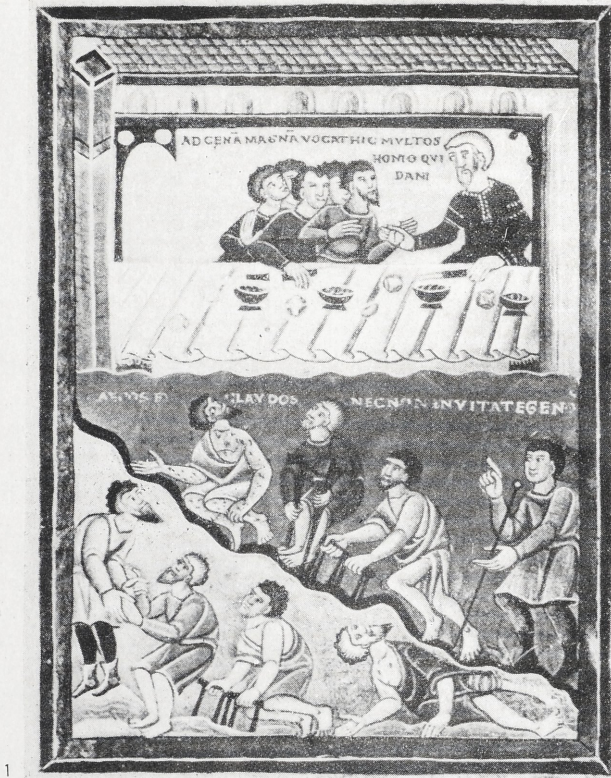 AD CENÃ MAGNÃ VOCAT HIC MVLTOS
HOMO QVI
DAM
CLAVDOS NECNON INVITAT EGEN
1